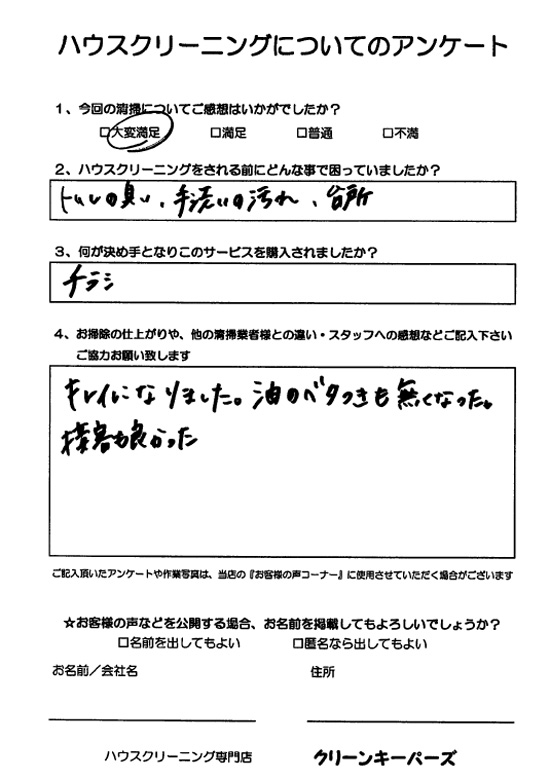 ハウスクリーニングについてのアンケート
1、今回の清掃についてご感想はいかがでしたか？
□大変満足 □満足 □普通 □不満
2、ハウスクリーニングをされる前にどんな事で困っていましたか？
トイレの臭い、手洗いの汚れ、台所
3、何が決め手となりこのサービスを購入されましたか？
チラシ
4、お掃除の仕上がりや、他の清掃業者様との違い・スタッフへの感想などご記入下さい
ご協力お願い致します
キレイになりました。油のベタつきも無くなった。
接客も良かった
ご記入頂いたアンケートや作業写真は、当店の『お客様の声コーナー』に使用させていただく場合がございます
☆お客様の声などを公開する場合、お名前を掲載してもよろしいでしょうか？
□名前を出してもよい □匿名なら出してもよい
お名前／会社名 住所
ハウスクリーニング専門店 クリーンキーパーズ